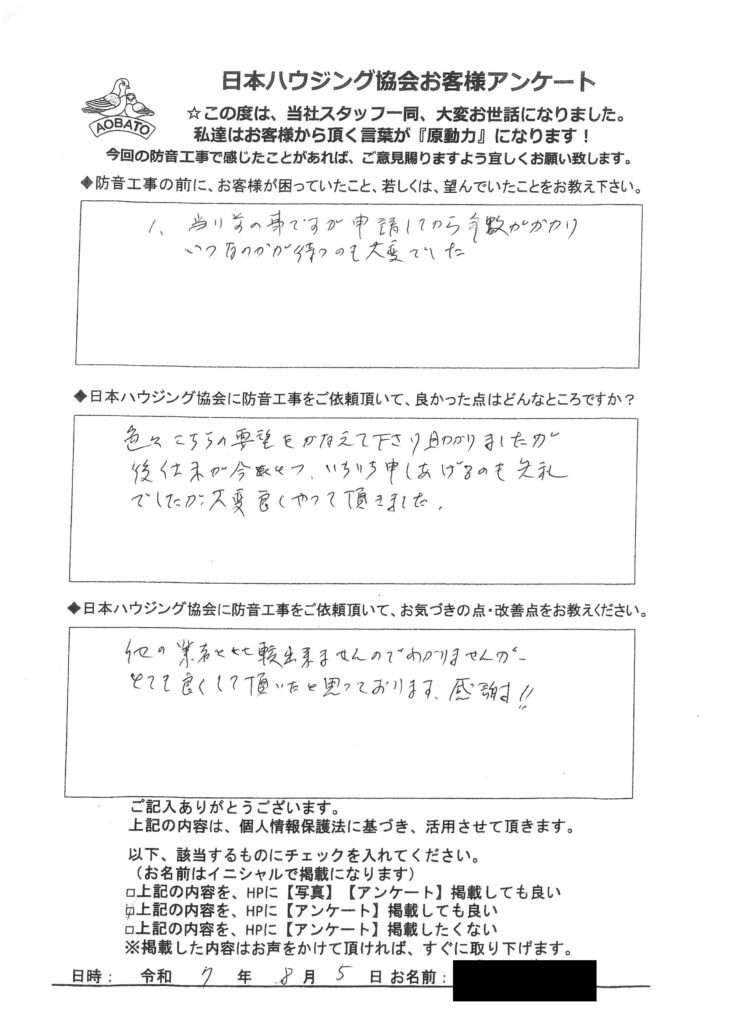 日本ハウジング協会お客様アンケート
AOBATO
☆この度は、当社スタッフ一同、大変お世話になりました。
私達はお客様から頂く言葉が『原動力』になります！
今回の防音工事で感じたことがあれば、ご意見賜りますよう宜しくお願い致します。
◆防音工事の前に、お客様が困っていたこと、若しくは、望んでいたことをお教え下さい。
1、当り前の事ですが申請してから年数がかかり
いつなのかが待つのも大変でした
◆日本ハウジング協会に防音工事をご依頼頂いて、良かった点はどんなところですか？
色々こちらの要望をかなえて下さり助かりましたが
後仕末が今 、いちいち申しあげるのも失礼
でしたが大変良くやって頂きました。
◆日本ハウジング協会に防音工事をご依頼頂いて、お気づきの点・改善点をお教えください。
他の業者と比較出来ませんのでわかりませんが
とても良くして頂いたと思っております、感謝!!
ご記入ありがとうございます。
上記の内容は、個人情報保護法に基づき、活用させて頂きます。
以下、該当するものにチェックを入れてください。
（お名前はイニシャルで掲載になります）
□上記の内容を、HPに【写真】【アンケート】掲載しても良い
☑上記の内容を、HPに【アンケート】掲載しても良い
□上記の内容を、HPに【アンケート】掲載したくない
※掲載した内容はお声をかけて頂ければ、すぐに取り下げます。
日時： 令和 7 年 8 月 5 日 お名前：